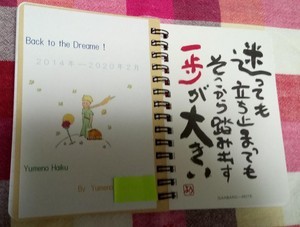 Back to the Dreame !
2018年－2020年2月
Yumeno Haiku
By
迷っても
立ち止まっても
そこから踏み出す
一歩が大きい